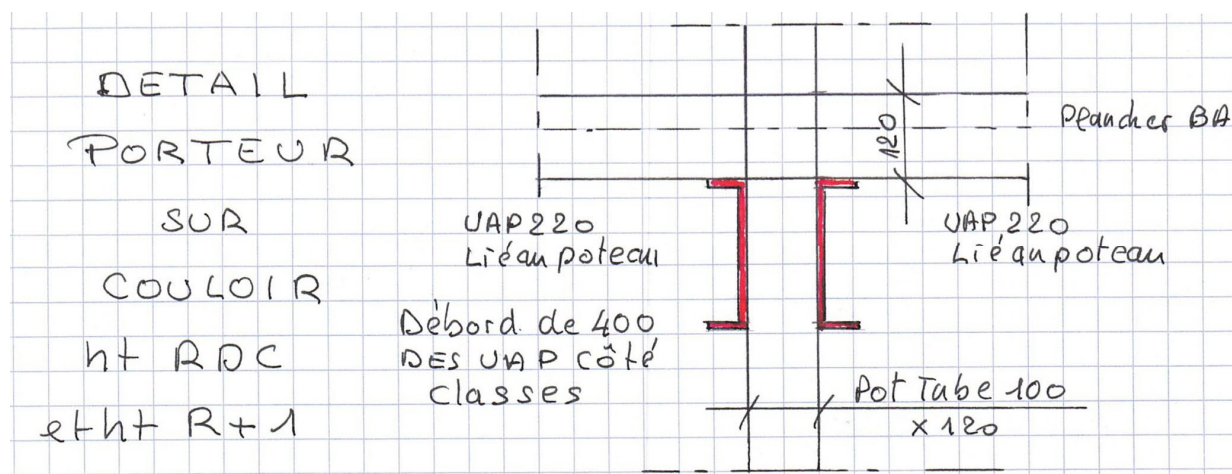 DETAIL
PORTEUR
SUR
COULOIR
ht RDC
et ht R+1
Plancher BA
120
UAP 220
Lié au poteau
UAP 220
Lié au poteau
Débord de 400
DES UAP côté
classes
Pot Tube 100
x 120